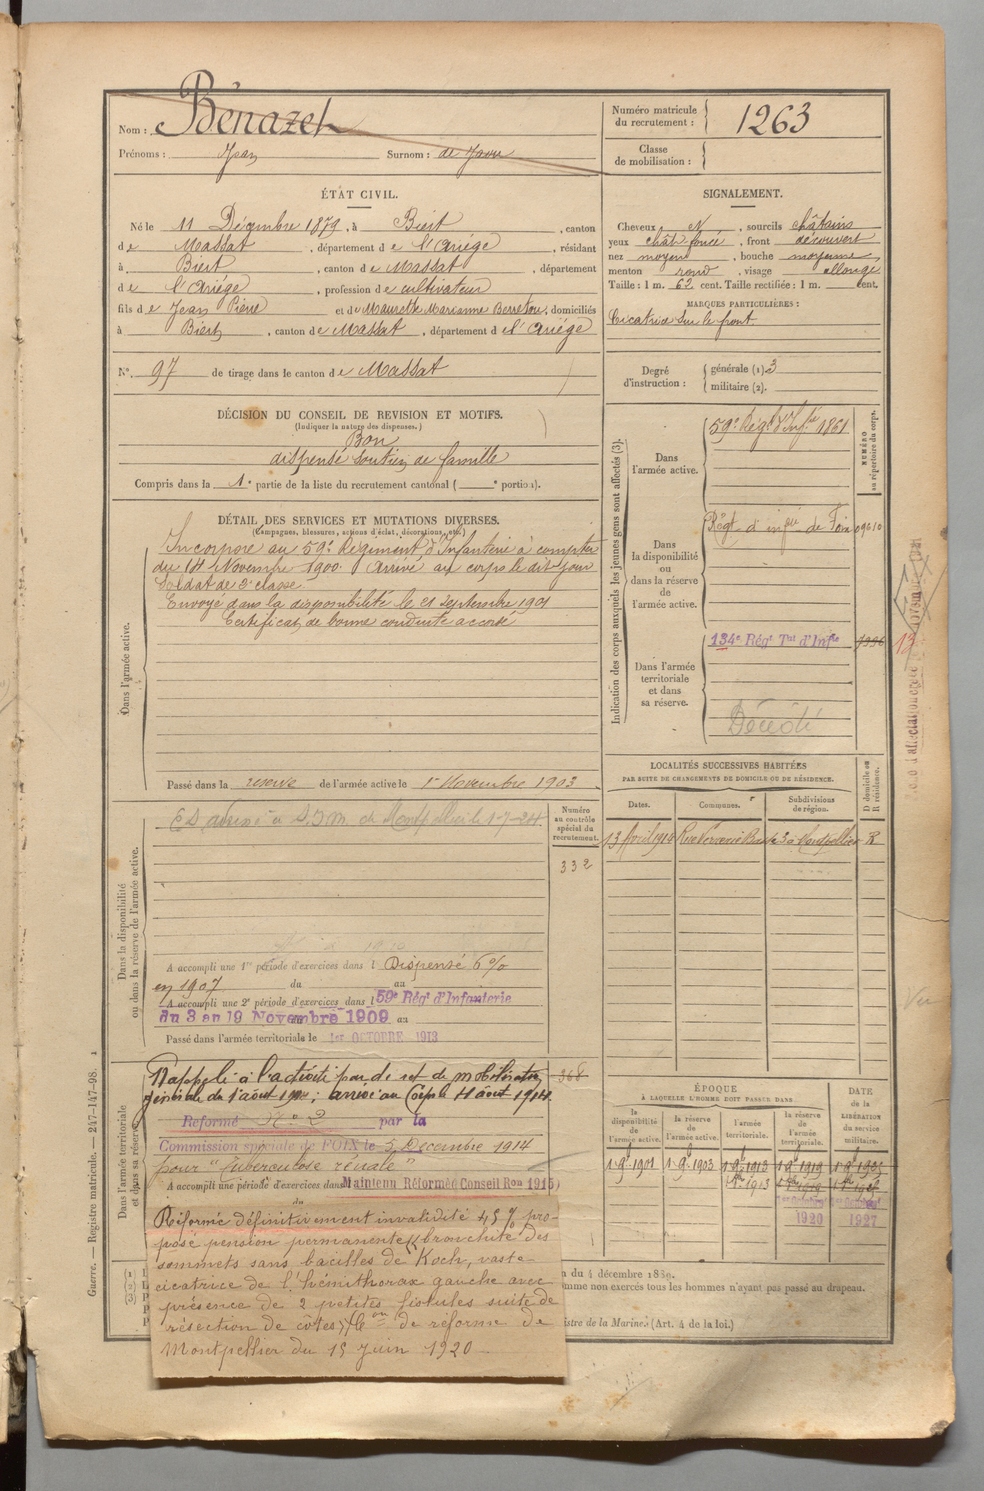 Nom : Bénazet
Prénoms : Jean Surnom : de
Numéro matricule du recrutement : 1263
Classe de mobilisation :
ÉTAT CIVIL.
Né le 11 Décembre 1879, à Biert, canton
de Massat, département de l'Ariège, résidant
à Biert, canton de Massat, département
de l'Ariège, profession de cultivateur
fils de Jean Pierre et de Maurette Marianne, domiciliés
à Biert, canton de Massat, département de l'Ariège
N° 97 de tirage dans le canton de Massat
SIGNALEMENT.
Cheveux et, sourcils châtains
yeux chât foncé, front découvert
nez moyen, bouche moyenne
menton rond, visage allongé
Taille : 1 m. 62 cent. Taille rectifiée : 1 m. cent.
MARQUES PARTICULIÈRES :
Cicatrice sur le front
Degré d'instruction :
générale (1) 3
militaire (2).
DÉCISION DU CONSEIL DE REVISION ET MOTIFS.
(Indiquer la nature des dispenses.)
Bon
dispensé soutien de famille
Compris dans la 1e partie de la liste du recrutement cantonal ( e portion).
DÉTAIL DES SERVICES ET MUTATIONS DIVERSES.
(Campagnes, blessures, actions d'éclat, décorations, etc.)
Dans l'armée active.
Incorporé au 59e Régiment d'Infanterie à compter
du 14 Novembre 1900. Arrivé au corps le dit jour
Soldat de 2e classe
Envoyé dans la disponibilité le 21 Septembre 1901
Certificat de bonne conduite accordé
Passé dans la réserve de l'armée active le 1er Novembre 1903
Indication des corps auxquels les jeunes gens sont affectés (3).
NUMÉRO au répertoire du corps.
Dans l'armée active.
59e Régt d'Infrie 1861
Dans la disponibilité ou dans la réserve de l'armée active.
Régt d'infrie de Foix 09610
Dans l'armée territoriale et dans sa réserve.
134e Régt Tal d'Infie
Décédé
LOCALITÉS SUCCESSIVES HABITÉES
PAR SUITE DE CHANGEMENTS DE DOMICILE OU DE RÉSIDENCE.
Dates.
Communes.
Subdivisions de région.
D domicile ou R résidence.
13 Avril 1910 Montpellier R
Dans la disponibilité ou dans la réserve de l'armée active.
Numéro au contrôle spécial du recrutement.
332
de Montpellier le 1-7-24
A accompli une 1re période d'exercices dans l Dispensé 6 %
en 1907 du au
A accompli une 2e période d'exercices dans l 59e Régt d'Infanterie
du 3 au 19 Novembre 1909 au
Passé dans l'armée territoriale le 1er OCTOBRE 1913
Dans l'armée territoriale et dans sa réserve
Rappelé à l'activité par décret de mobilisation
générale du 1 août 1914 ; arrivé au Corps le 4 août 1914
368
Réformé N° 2 par la
Commission spéciale de FOIX le 5 Décembre 1914
pour "Tuberculose rénale"
A accompli une période d'exercices dans Maintenu Réformé Conseil Ron 1915
Réformé définitivement invalidité 45 % pro-
posé pension permanente (bronchite des
sommets sans bacilles de Koch, vaste
cicatrice de l'hémithorax gauche avec
présence de 2 petites fistules suite de
résection de côtes) Con de réforme de
Montpellier du 15 Juin 1920
ÉPOQUE
À LAQUELLE L'HOMME DOIT PASSER DANS
la disponibilité de l'armée active.
la réserve de l'armée active.
l'armée territoriale.
la réserve de l'armée territoriale.
DATE de la LIBÉRATION du service militaire.
1920 1927
n du 4 décembre 1889.
omme non exercés tous les hommes n'ayant pas passé au drapeau.
istre de la Marine. (Art. 4 de la loi.)
Guerre. — Registre matricule. — 247-147-98.